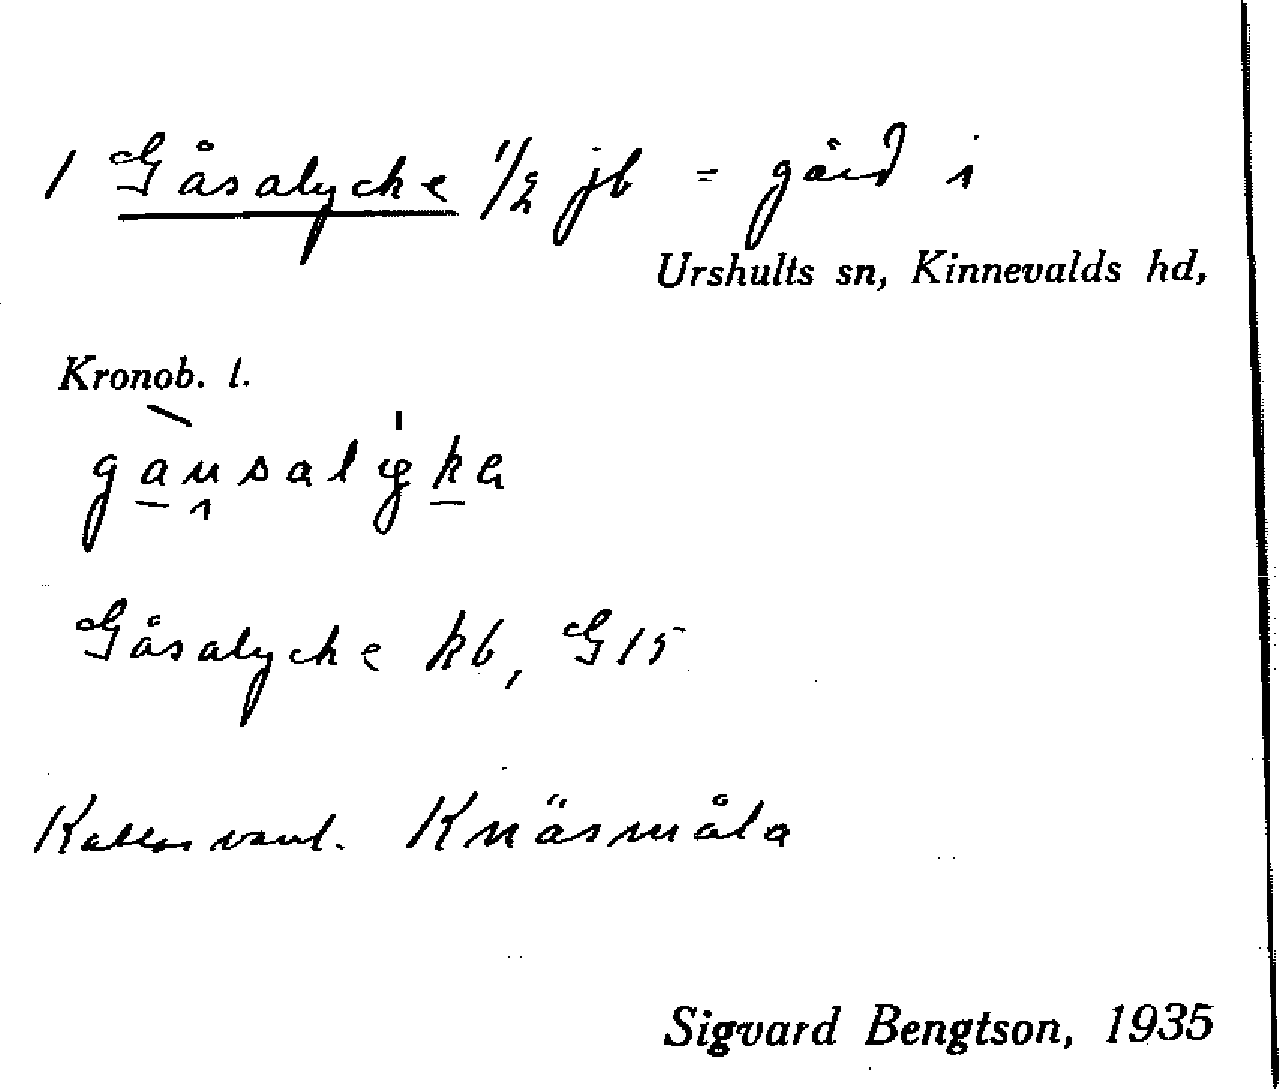 1 Gåsalycke 1/2 jb = gård i
Urshults sn, Kinnevalds hd,
Kronob. l.
Gåsalycke kb, G15
Kallas vanl. Knäsmåla
Sigvard Bengtson, 1935